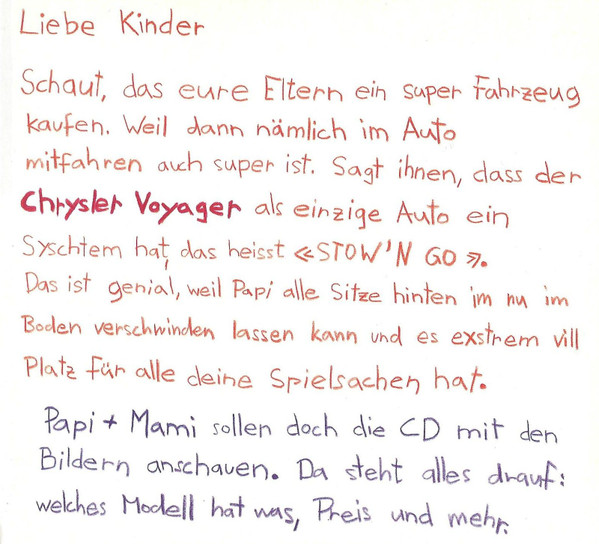 Liebe Kinder
Schaut, das eure Eltern ein super Fahrzeug
kaufen. Weil dann nämlich im Auto
mitfahren auch super ist. Sagt ihnen, dass der
Chrysler Voyager als einzige Auto ein
Syschtem hat, das heisst «STOW'N GO».
Das ist genial, weil Papi alle Sitze hinten im nu im
Boden verschwinden lassen kann und es exstrem vill
Platz für alle deine Spielsachen hat.
Papi + Mami sollen doch die CD mit den
Bildern anschauen. Da steht alles drauf:
welches Modell hat was, Preis und mehr.